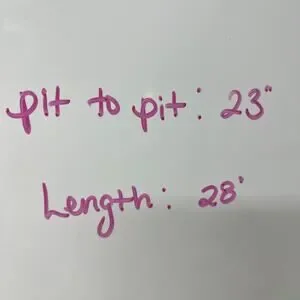 pit to pit: 23"
Length: 28'